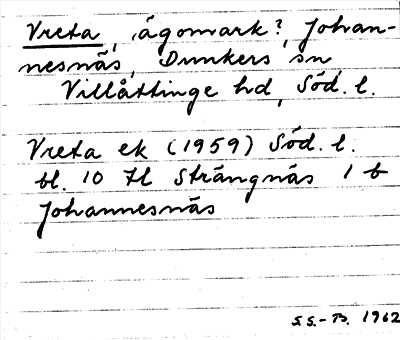 Vreta, ägomark?, Johan-
nesnäs, Dunkers sn,
Villåttinge hd, Söd. l.
Vreta ek (1959) Söd. l.
bl. 10 Hl Strängnäs 1 b
Johannesnäs
S.S.-B. 1962